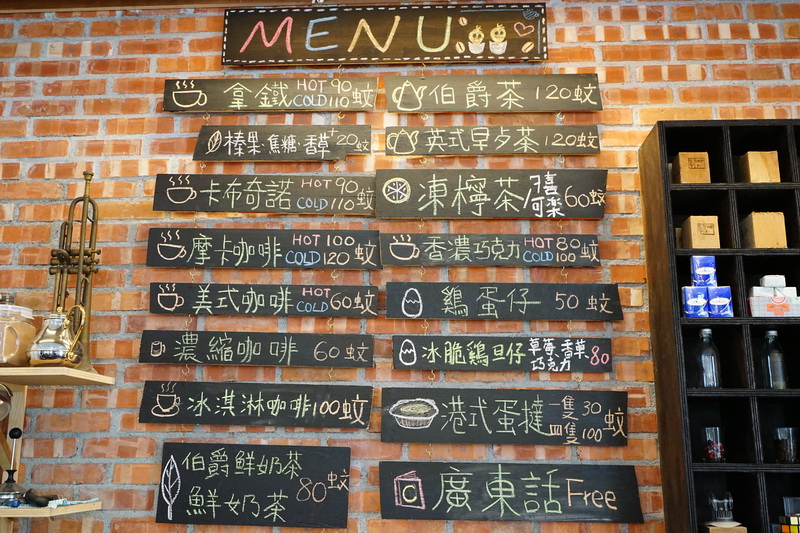 MENU
拿鐵 HOT 90 COLD 110 蚊
榛果·焦糖·香草 +20蚊
卡布奇諾 HOT 90 COLD 110 蚊
摩卡咖啡 HOT 100 COLD 120 蚊
美式咖啡 HOT COLD 60蚊
濃縮咖啡 60蚊
冰淇淋咖啡 100蚊
伯爵鮮奶茶
鮮奶茶 80蚊
伯爵茶 120蚊
英式早歺茶 120蚊
凍檸茶/檸樂 可樂 60蚊
香濃巧克力 HOT 80 COLD 100 蚊
鷄蛋仔 50蚊
冰脆鷄旦仔 草莓·香草 巧克力 80
港式蛋撻 一隻30 四隻100 蚊
廣東話 Free